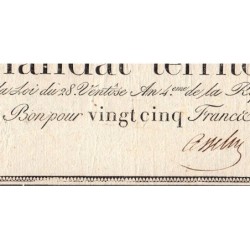 Mandat territo
Loi du 28. Ventôse An 4.eme de la R
Bon pour vingt cinq Francs